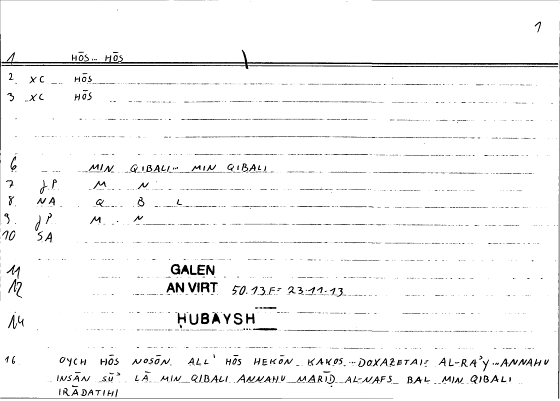 1
1 HŌS... HŌS
2 XC HŌS
3 XC HŌS
6 MIN QIBALI... MIN QIBALI
7 JP M N
8 NA Q B L
9 JP M N
10 SA
11 GALEN
12 AN VIRT 50.13 F = 23-11-13
14 ḤUBAYSH
16 OYCH HŌS NOSŌN ALL' HŌS HEKŌN KAKOS DOXAZETAI= AL-RAʾY ANNAHU
INSĀN SŪʾ LĀ MIN QIBALI ANNAHU MARĪḌ AL-NAFS BAL MIN QIBALI
IRĀDATIHI